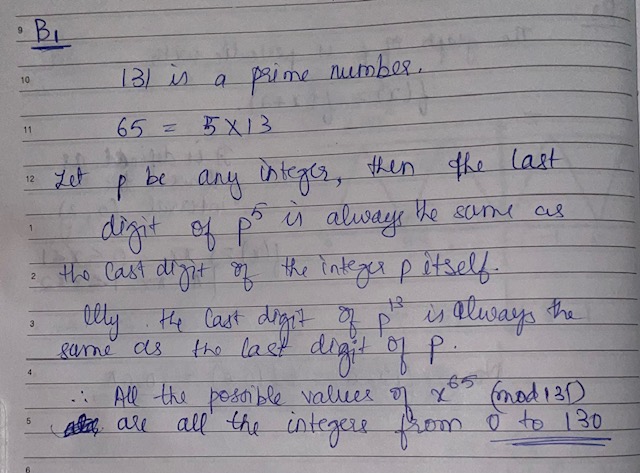 9 B1
10 131 is a prime number.
11 65 = 5 X 13
12 Let p be any integer, then the last
1 digit of p⁵ is always the same as
2 the last digit of the integer p itself.
3 llly the last digit of p¹³ is always the
same as the last digit of p.
4
∴ All the possible values of x⁶⁵ (mod 131)
5 are all the integers from 0 to 130
6